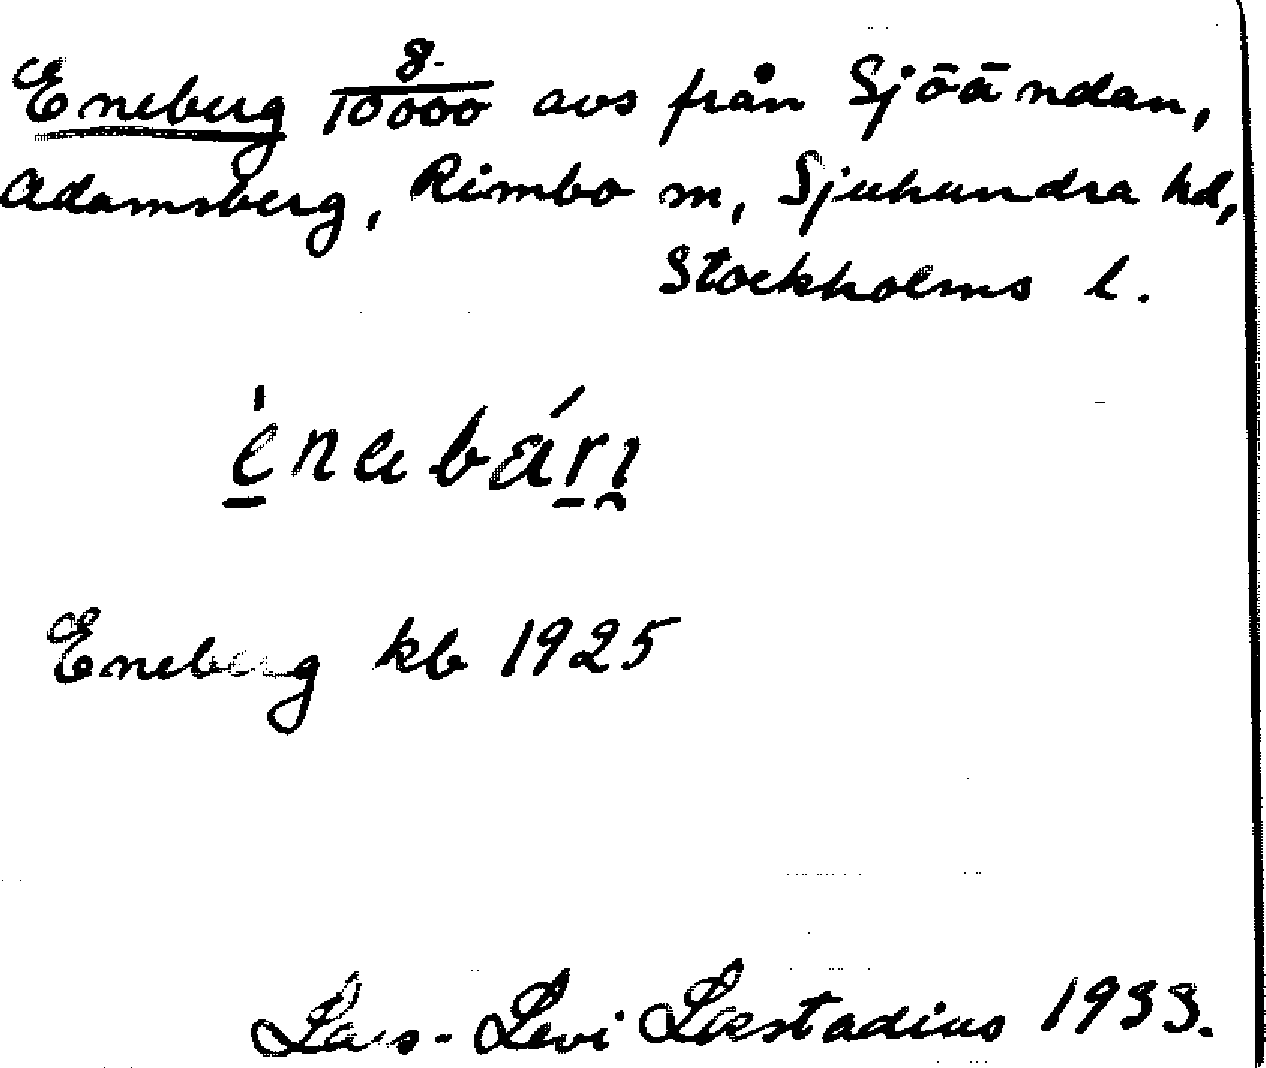 Eneberg 8/10000 avs från Sjöändan,
Adamsberg, Rimbo sn, Sjuhundra hd,
Stockholms l.
Eneberg kb 1925
Lars-Levi Læstadius 1933.